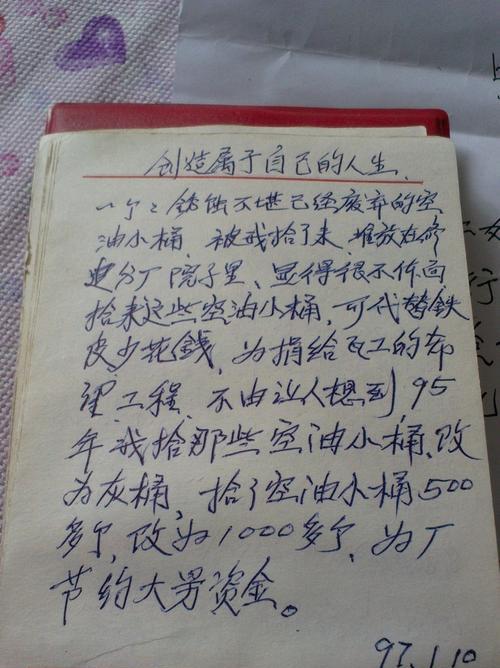 创造属于自己的人生、
一个々锈蚀不堪已经废弃的空
油小桶，被我拾了来，堆放在修
造分厂院子里、显得很不体面
拾来这些空油小桶，可代替铁
皮少花錢，为捐给瓦工的
理工程，不由让人想到，95
年我拾那些空油小桶、改
为灰桶，拾了空油小桶500
多个，改为1000多个，为厂
节约大另资金。
97.1.10